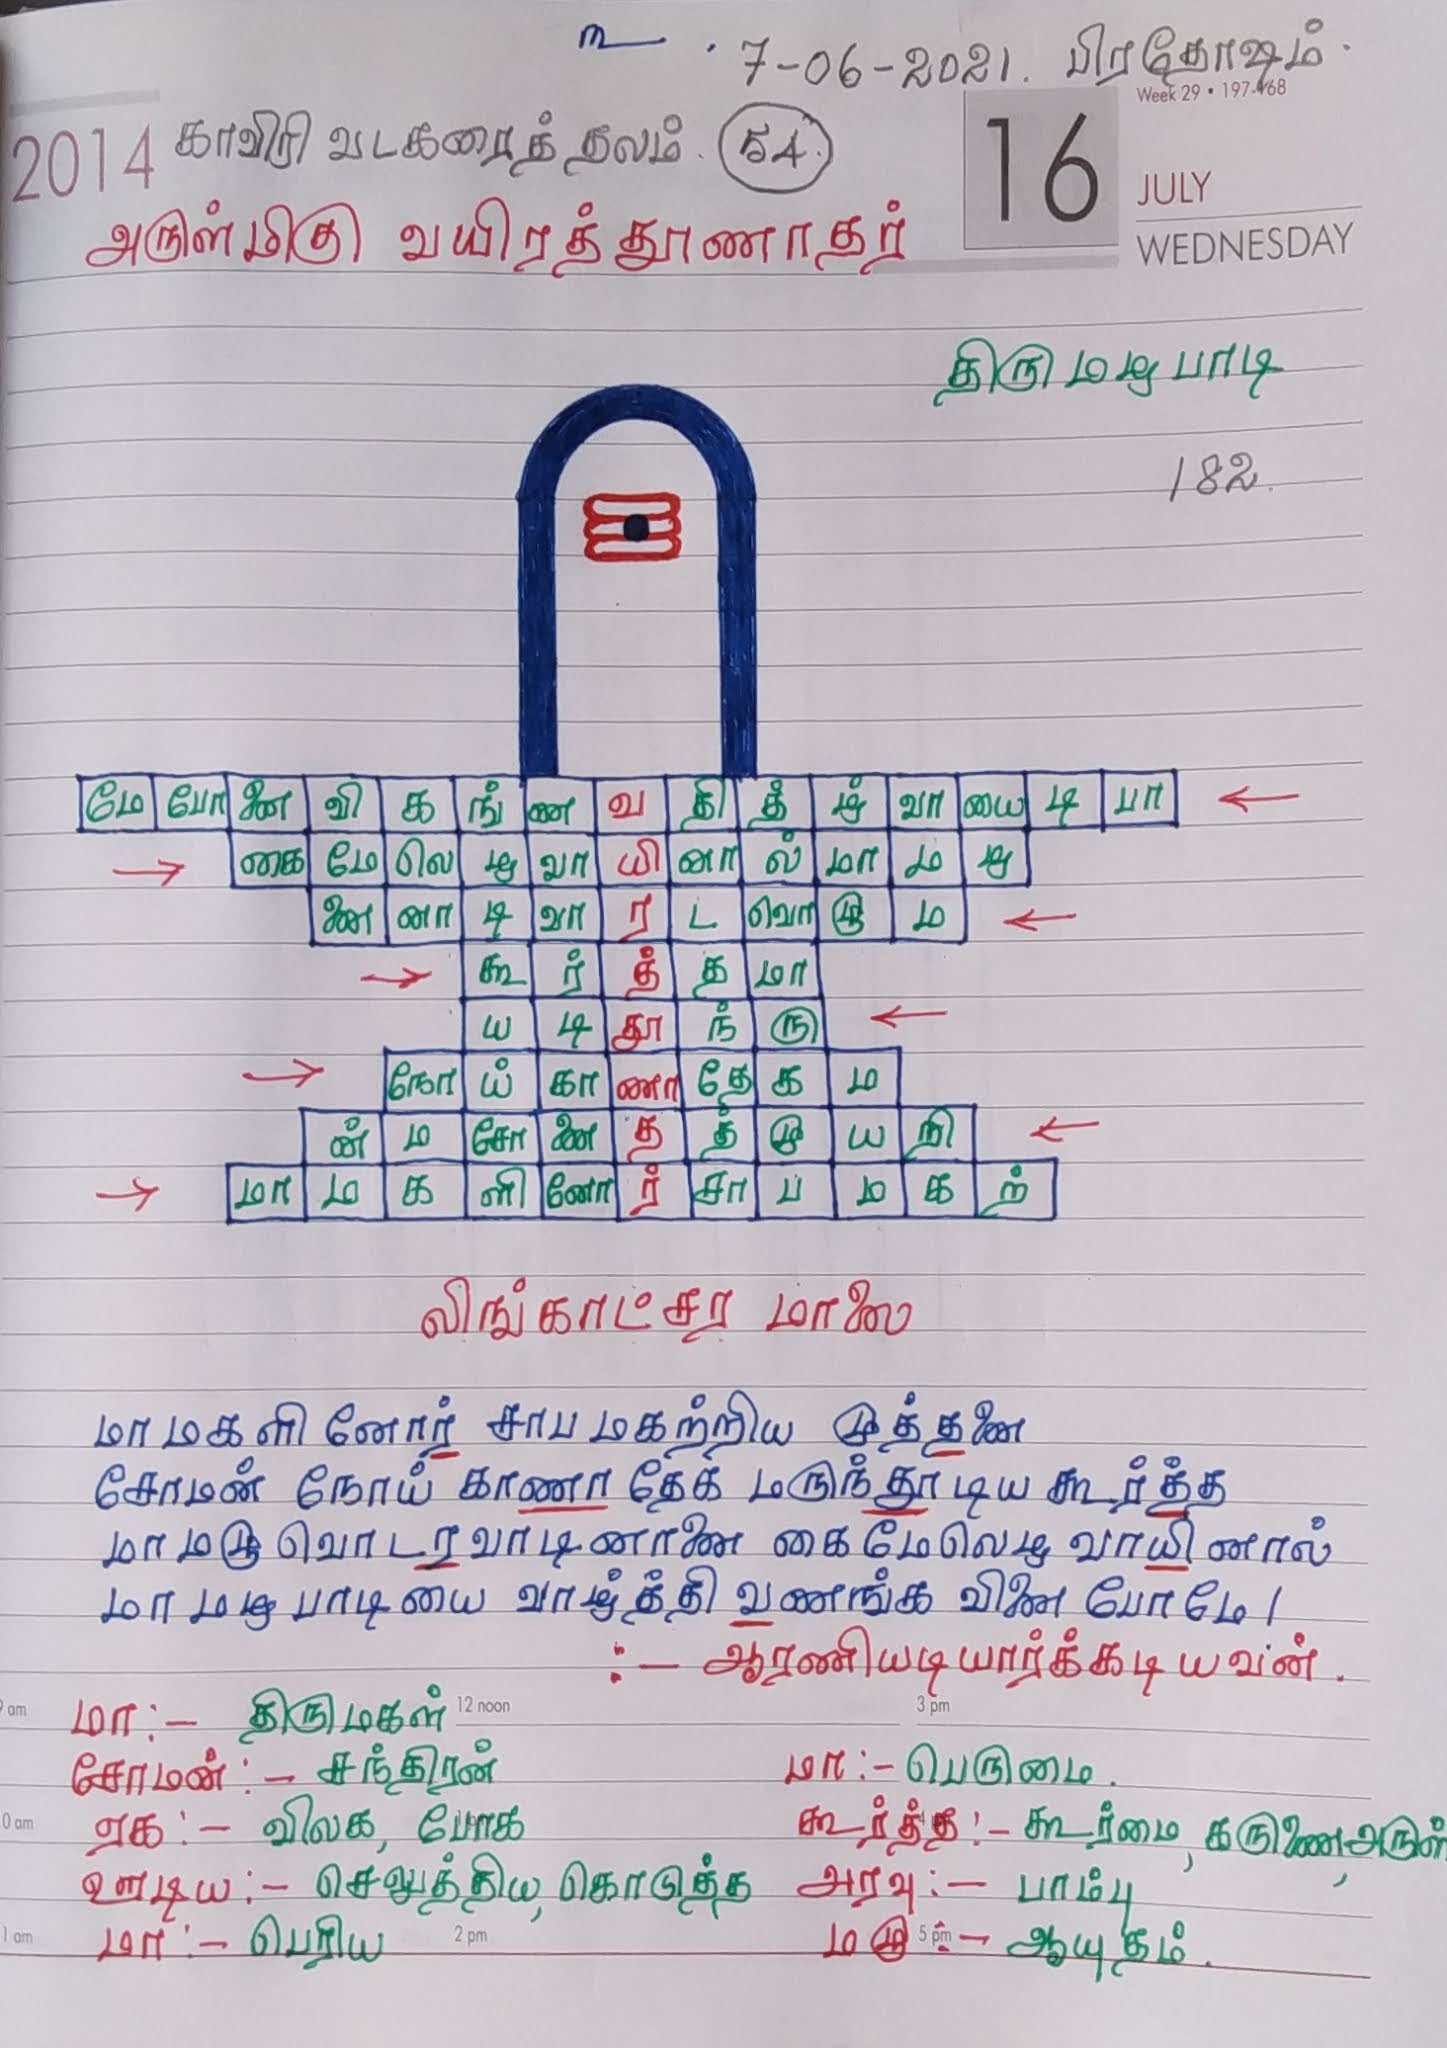 உ
7-06-2021. பிரதோஷம்.
Week 29 • 197-168
2014 காவிரி வடகரைத் தலம். 54.
16 JULY
WEDNESDAY
அருள்மிகு வயிரத்தூணாதர்
திருமழபாடி
182.
மே போ னை வி க ங் ண வ தி த் ழ் வா யை டி பா
கை மே லெ ழு வா யி னா ல் மா ம ழ
னை னா டி வா ர ட வொ மு ம
கூ ர் த் த மா
ய டி தூ ந் ரு
நோ ய் கா ணா தே க ம
ன் ம சோ னை த த் மு ய றி
மா ம க ளி னோ ர் சா ப ம க ற்
லிங்காட்சர மாலை
மாமகளினோர் சாபமகற்றிய முத்தனை
சோமன் நோய் காணா தேக மருந்தூடிய கூர்த்த
மாமழுவொடரவாடினானை கைமேலெழு வாயினால்
மாமழபாடியை வாழ்த்தி வணங்க வினை போமே!
:- ஆரணியடியார்க்கடியவன்.
9 am 12 noon 3 pm
மா:- திருமகள்
சோமன்:- சந்திரன் மா:- பெருமை.
10 am
ஏக:- விலக, போக கூர்த்த:- கூர்மை, கருணை, அருள்
ஊடிய:- செலுத்திய, கொடுத்த அரவு:- பாம்பு
11 am 2 pm 5 pm
மா:- பெரிய மழு:- ஆயுதம்.